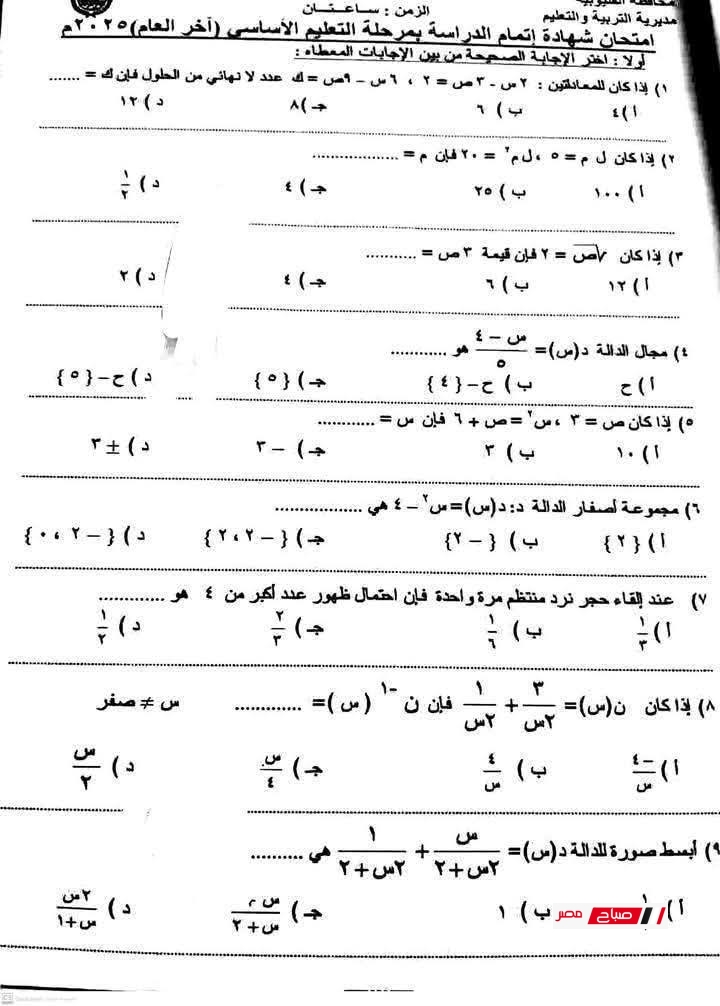 محافظة القليوبية
مديرية التربية والتعليم
الزمن : ساعتان
امتحان شهادة إتمام الدراسة بمرحلة التعليم الأساسي (آخر العام) ٢٠٢٥م
أولا : اختر الإجابة الصحيحة من بين الإجابات المعطاه :
١) إذا كان للمعادلتين : ٢س - ٣ص = ٢ ، ٦س - ٩ص = ك عدد لا نهائي من الحلول فإن ك = .......
أ) ٤ ب) ٦ جـ) ٨ د) ١٢
٢) إذا كان ل م = ٥ ، ل م² = ٢٠ فإن م = ..................
أ) ١٠٠ ب) ٢٥ جـ) ٤ د) ١/٢
٣) إذا كان √ص = ٢ فإن قيمة ٣ص = ...........
أ) ١٢ ب) ٦ جـ) ٤ د) ٢
٤) مجال الدالة د(س)= (س – ٤)/٥ هو ............
أ) ح ب) ح-{٤} جـ) {٥} د) ح-{٥}
٥) إذا كان ص = ٣ ، س² = ص + ٦ فإن س = ............
أ) ١٠ ب) ٣ جـ) – ٣ د) ± ٣
٦) مجموعة أصفار الدالة د: د(س)= س² – ٤ هي ..................
أ) {٢} ب) {– ٢} جـ) {– ٢ ، ٢} د) {– ٢ ، ٠}
٧) عند إلقاء حجر نرد منتظم مرة واحدة فإن احتمال ظهور عدد أكبر من ٤ هو .............
أ) ١/٣ ب) ١/٦ جـ) ٢/٣ د) ١/٢
٨) إذا كان ن(س)= ٣/٢س + ١/٢س فإن ن⁻¹ (س)= ............. س ≠ صفر
أ) -٤/س ب) ٤/س جـ) س/٤ د) س/٢
٩) أبسط صورة للدالة د(س)= س/(٢س+٢) + ١/(٢س+٢) هي ..........
أ) ب) ١ جـ) س/(س+٢) د) ٢س/(س+١)
صباح مصر